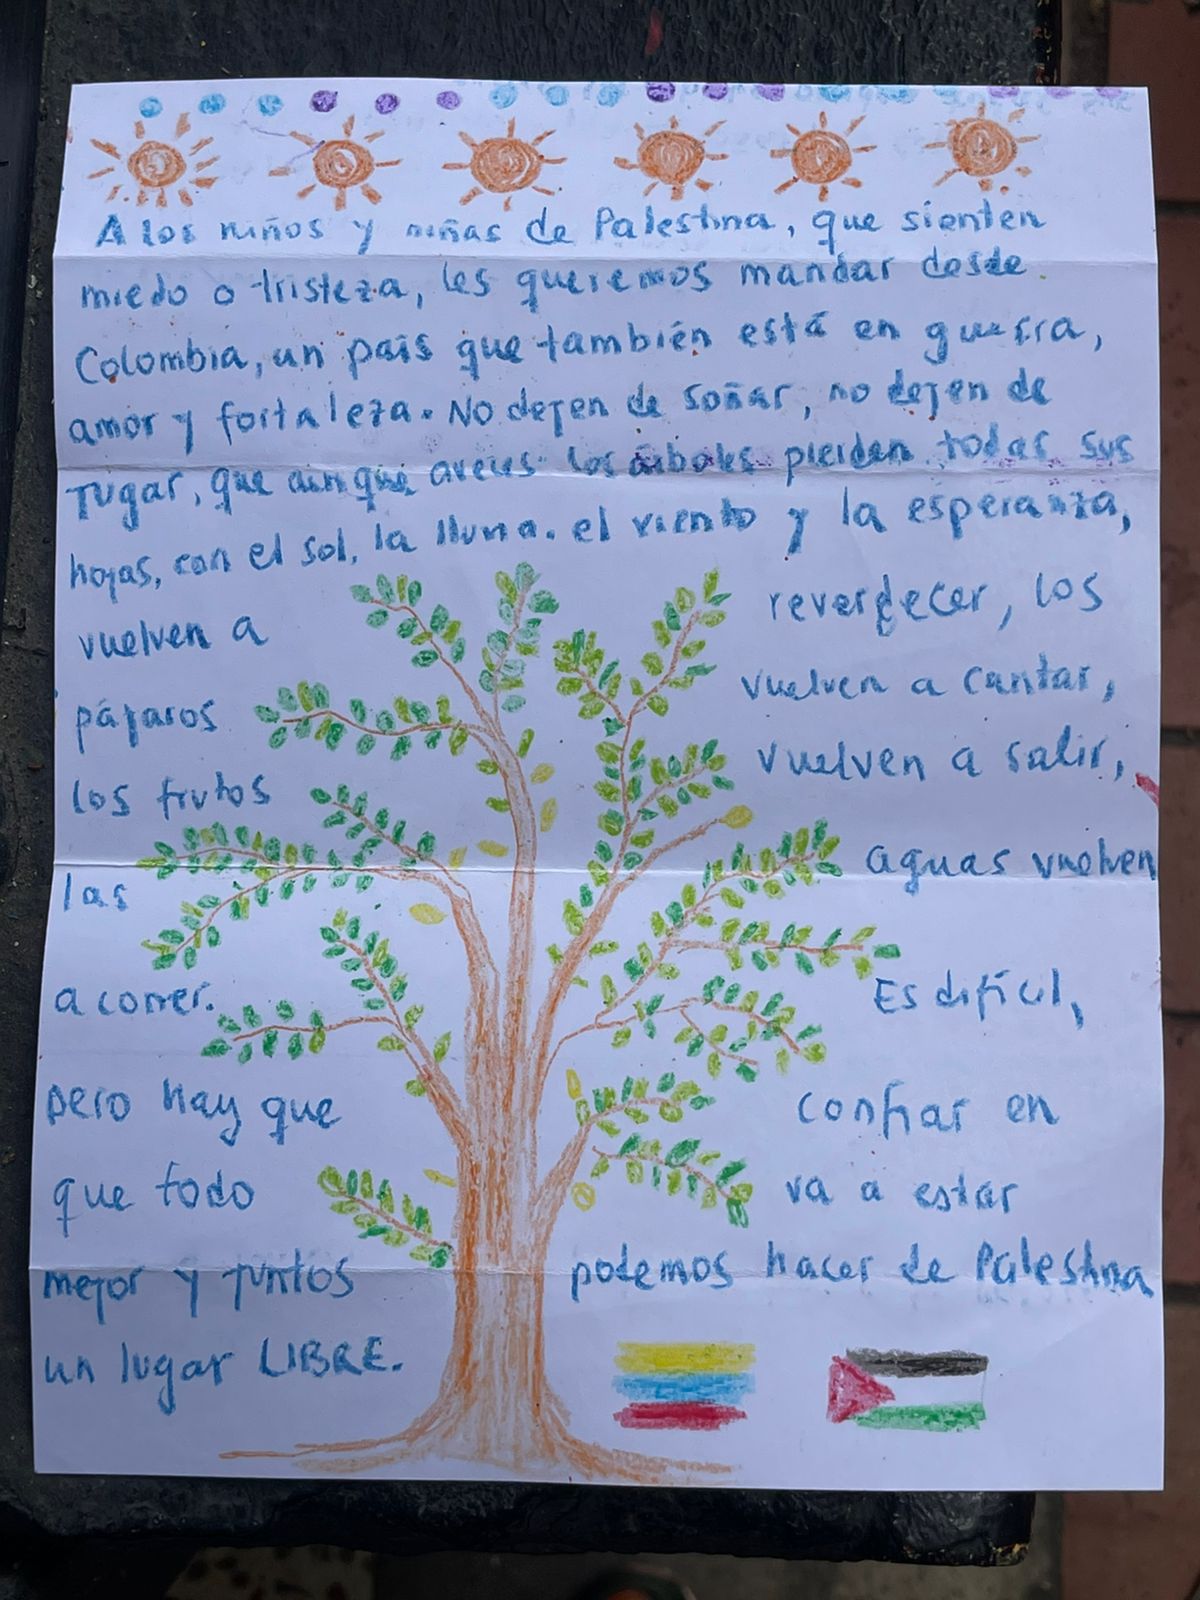 A los niños y niñas de Palestina, que sienten
miedo o tristeza, les queremos mandar desde
Colombia, un país que también está en guerra,
amor y fortaleza. No dejen de soñar, no dejen de
jugar, que aunque aveces los árboles pierden todas sus
hojas, con el sol, la lluvia. el viento y la esperanza,
vuelven a reverdecer, los
pájaros vuelven a cantar,
los frutos vuelven a salir,
las aguas vuelven
a correr. Es difícil,
pero hay que confiar en
que todo va a estar
mejor y juntos podemos hacer de Palestina
un lugar LIBRE.